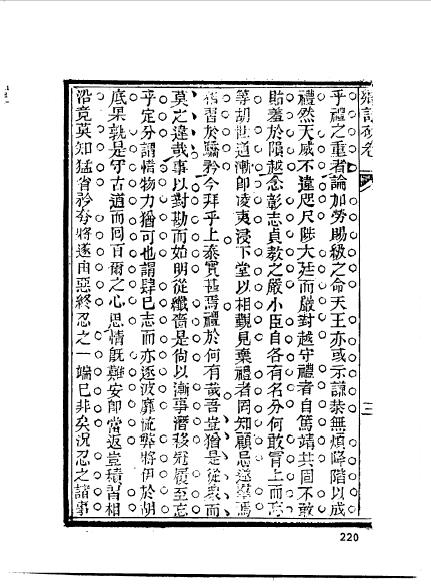 乎禮之重者論加勞賜級之命天王亦或示謙恭無煩降階以成
禮然天威不違咫尺陟大廷而嚴對越守禮者自篤靖共固不敢
貽羞於隕越念彰志貞教之嚴小臣自各有名分何敢冒上而忘
等胡世道漸即凌夷浸下堂以相觀見棄禮者罔知顧忌遂群焉
習於驕矜今拜乎上泰實甚焉禮於何有哉吾豈猶是從衆而
莫之違哉事以對勘而始明從纖嗇是尚以漸事潛移冠履至忘
乎定分謂惜物力猶可也謂肆已志而亦逐波靡流弊將伊於胡
底果孰是守古道而回百爾之心思情旣難安卽當返豈積習相
沿竟莫知猛省矜夸將遂由惡終忍之一端已非矣況忍之諸事
三
220